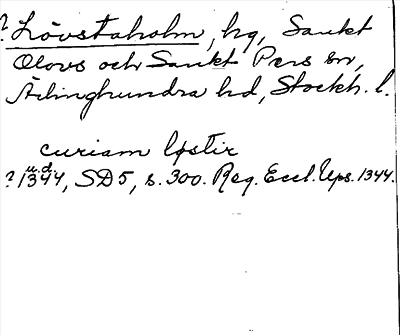 ? Lövstaholm, hg, Sankt
Olovs och Sankt Pers sn,
Ärlinghundra hd, Stockh. l.
curiam Løstir
u.d.
? 1344, SD 5, s. 300. Reg. Eccl. Ups. 1344.